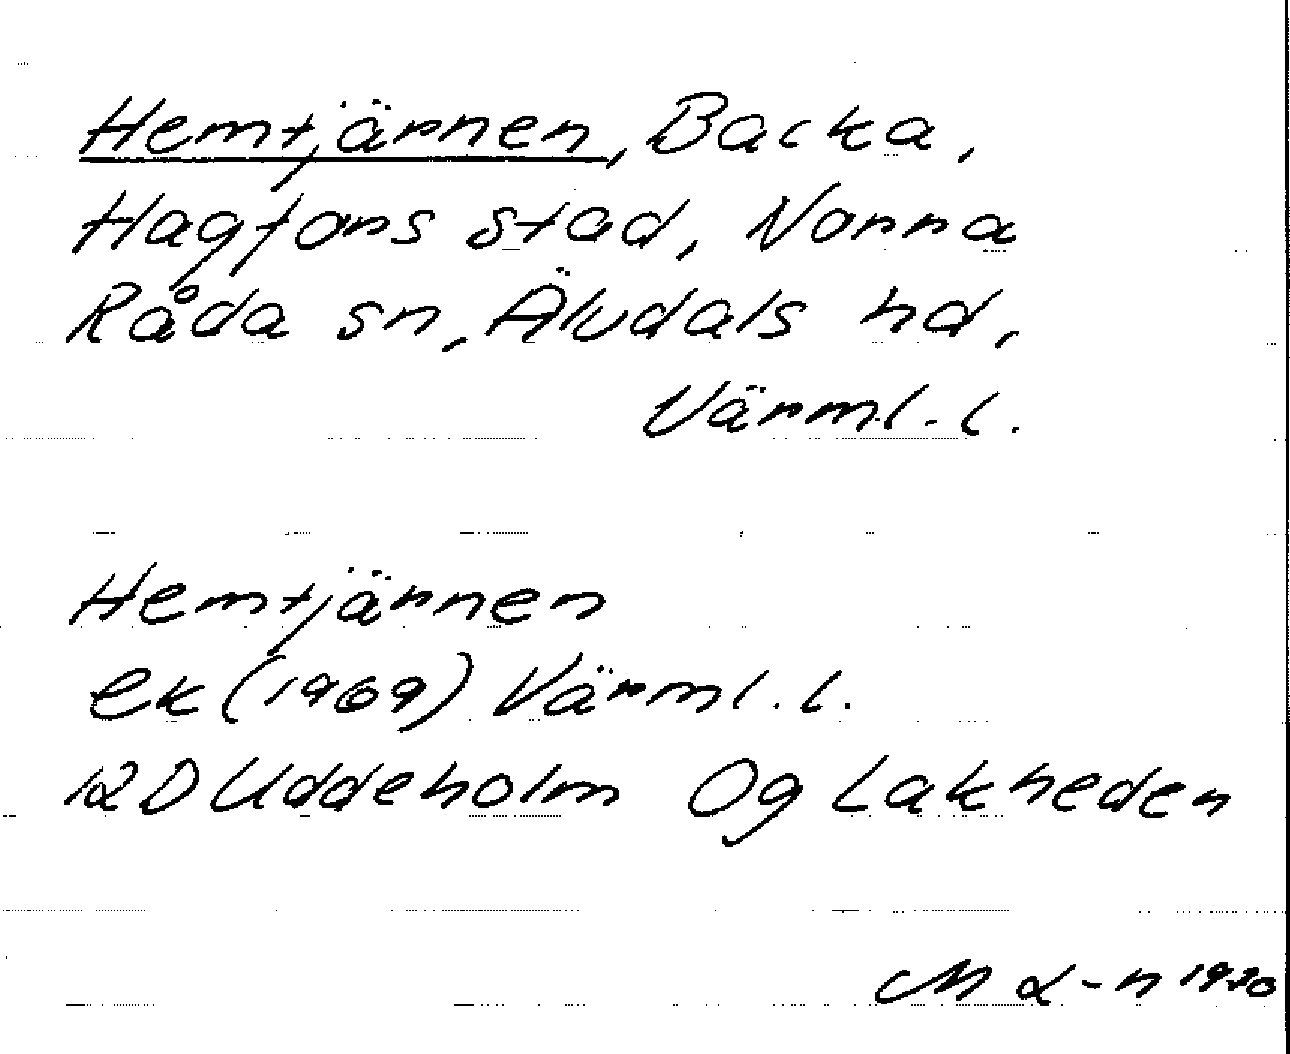 Hemtjärnen, Backa,
Hagfors stad, Norra
Råda sn, Älvdals hd,
Värml. l.
Hemtjärnen
ek (1969) Värml. l.
12D Uddeholm 0g Lakheden